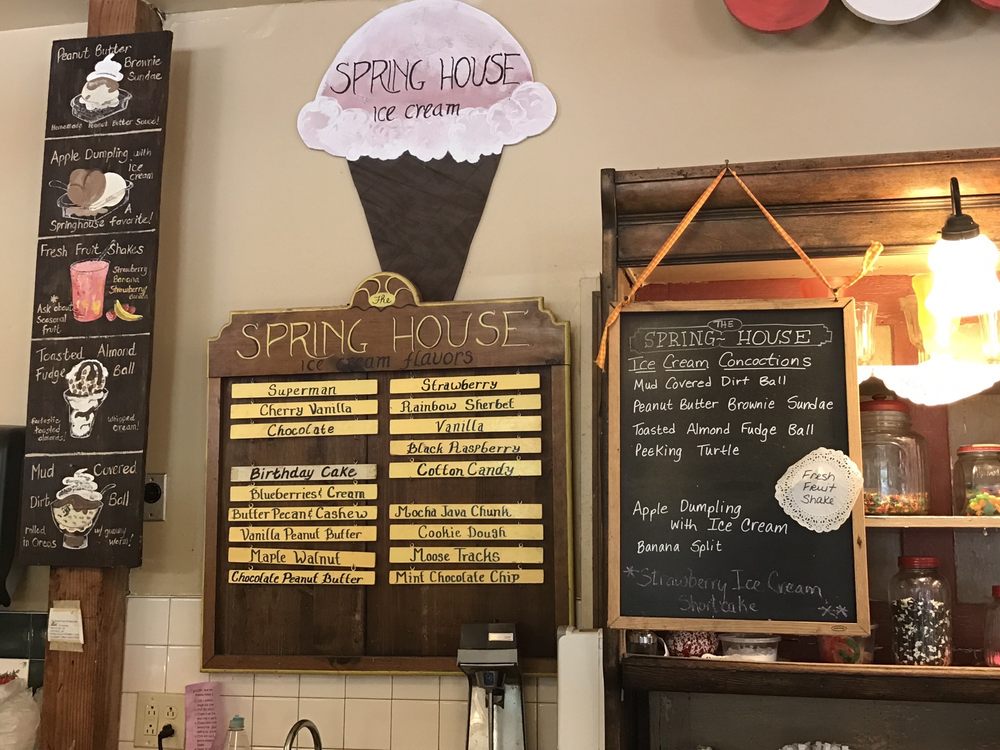 Peanut Butter
Brownie
Sundae
Homemade Peanut Butter Sauce!
Apple Dumpling with
ice
cream
A
Springhouse favorite!
Fresh Fruit Shakes
Strawberry
Banana
Strawberry/
Banana
Ask about
Seasonal
fruit
Toasted Almond
Fudge Ball
Fantastic
toasted
almonds!
whipped
cream!
Mud Covered
Dirt Ball
rolled
in Oreos
w/ gummy
worm!
SPRING HOUSE
ice cream
The
SPRING HOUSE
ice cream flavors
Superman
Cherry Vanilla
Chocolate
Birthday Cake
Blueberries & Cream
Butter Pecan & Cashew
Vanilla Peanut Butter
Maple Walnut
Chocolate Peanut Butter
Strawberry
Rainbow Sherbet
Vanilla
Black Raspberry
Cotton Candy
Mocha Java Chunk
Cookie Dough
Moose Tracks
Mint Chocolate Chip
THE
SPRING~ HOUSE
Ice Cream Concoctions
Mud Covered Dirt Ball
Peanut Butter Brownie Sundae
Toasted Almond Fudge Ball
Peeking Turtle
Fresh
Fruit
Shake
Apple Dumpling
with Ice Cream
Banana Split
*Strawberry Ice Cream
Shortcake **